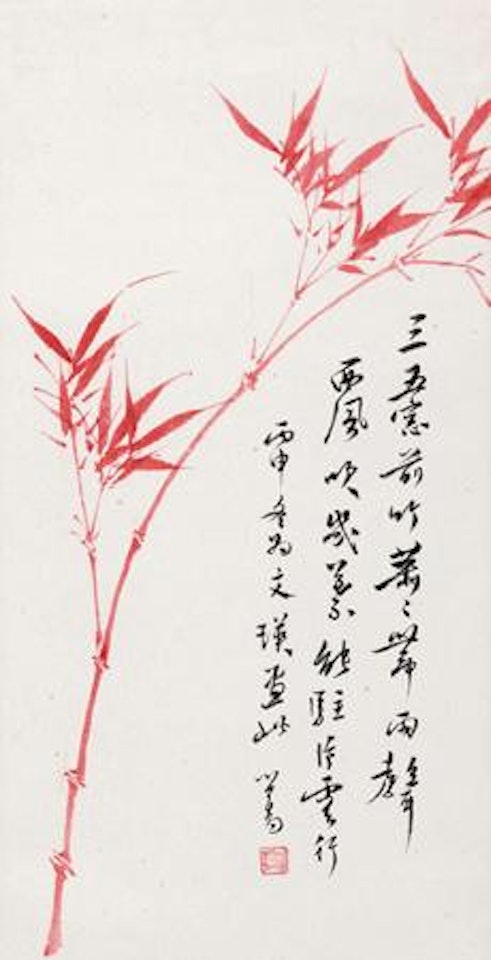 三五窗前竹蕭〻帶雨聲
西風吹幾葉能駐片雲行
丙申冬為文瑛畫此 心畬